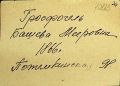 Гросфогель
Башева Мееровна
1866г.
Потемкинская 98